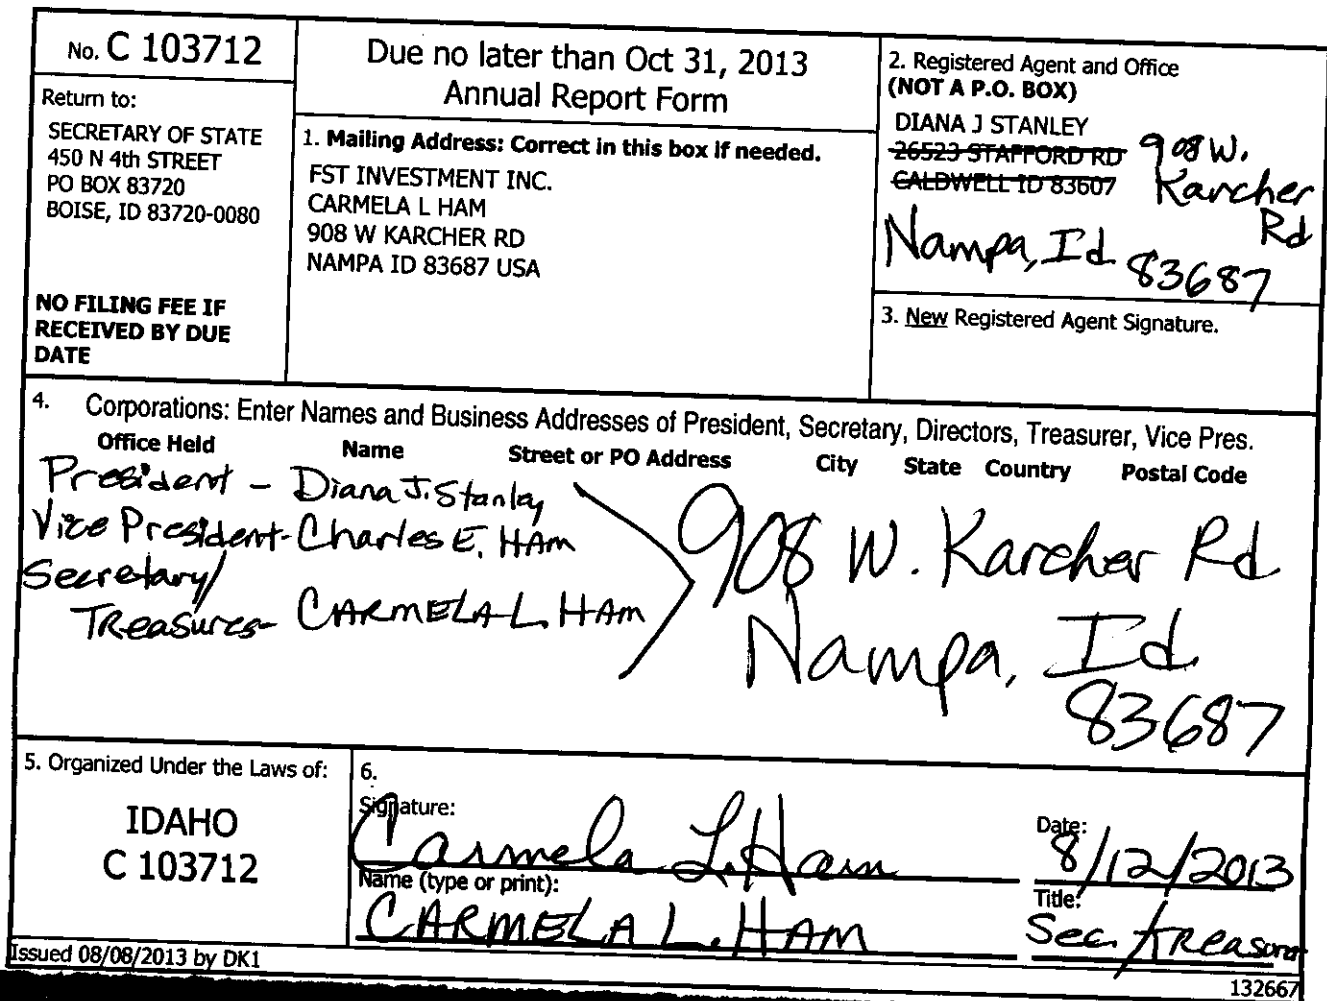 No. C 103712
Return to:
SECRETARY OF STATE
450 N 4th STREET
PO BOX 83720
BOISE, ID 83720-0080
NO FILING FEE IF
RECEIVED BY DUE
DATE
Due no later than Oct 31, 2013
Annual Report Form
1. Mailing Address: Correct in this box if needed.
FST INVESTMENT INC.
CARMELA L HAM
908 W KARCHER RD
NAMPA ID 83687 USA
2. Registered Agent and Office
(NOT A P.O. BOX)
DIANA J STANLEY
26523 STAFFORD RD
CALDWELL ID 83607
908 W.
Karcher
Rd
Nampa, Id 83687
3. New Registered Agent Signature.
4. Corporations: Enter Names and Business Addresses of President, Secretary, Directors, Treasurer, Vice Pres.
Office Held Name Street or PO Address City State Country Postal Code
President - Diana J. Stanley
Vice President - Charles E. HAM
Secretary/
Treasures - CARMELA L. HAM
908 W. Karcher Rd
Nampa, Id.
83687
5. Organized Under the Laws of:
IDAHO
C 103712
6.
Signature:
Carmela L. Ham
Date:
8/12/2013
Name (type or print):
CARMELA L. HAM
Title:
Sec. / Treasurer
Issued 08/08/2013 by DK1
132667